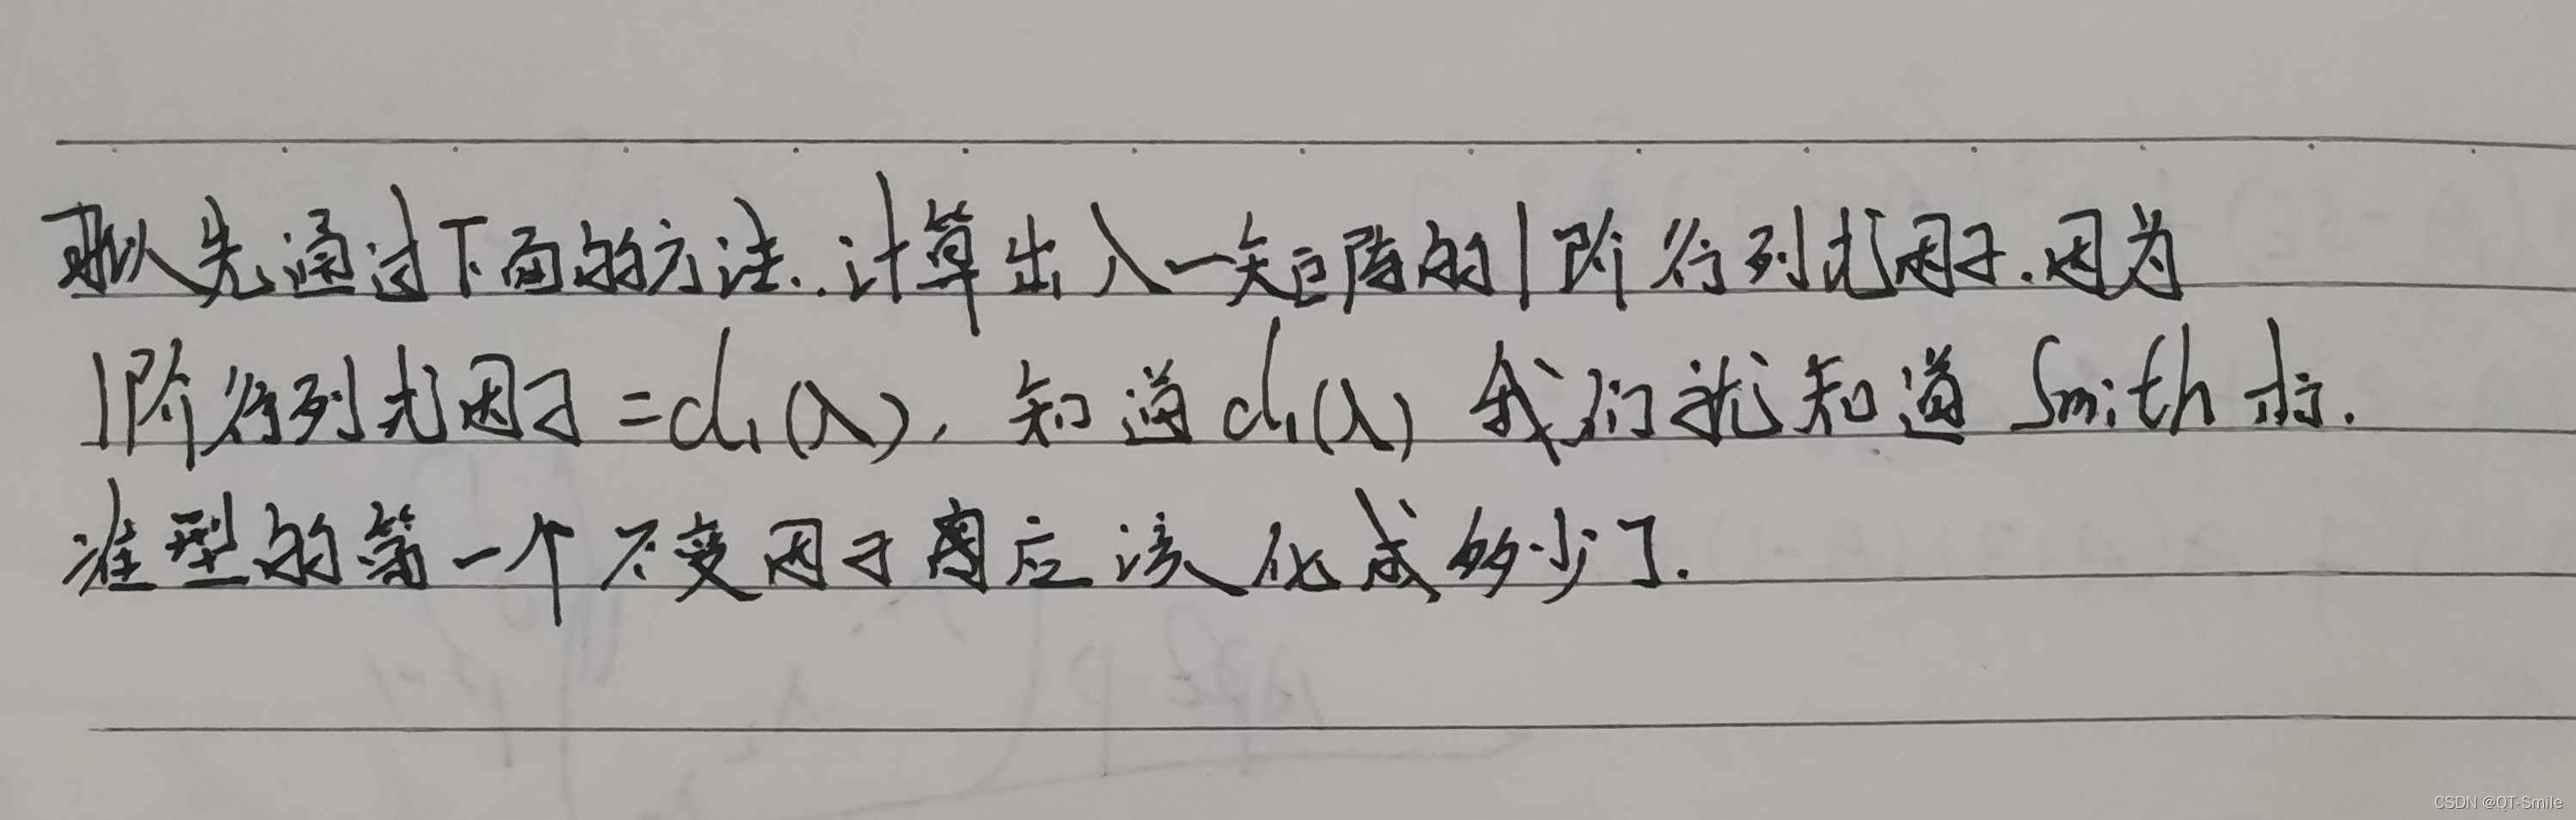 先通过下面的方法.计算出λ-矩阵的1阶行列式因子.因为
1阶行列式因子=d₁(λ), 知道d₁(λ) 我们就知道 Smith 标.
准型的第一个不变因子应该化成多少了.
CSDN @QT-Smile